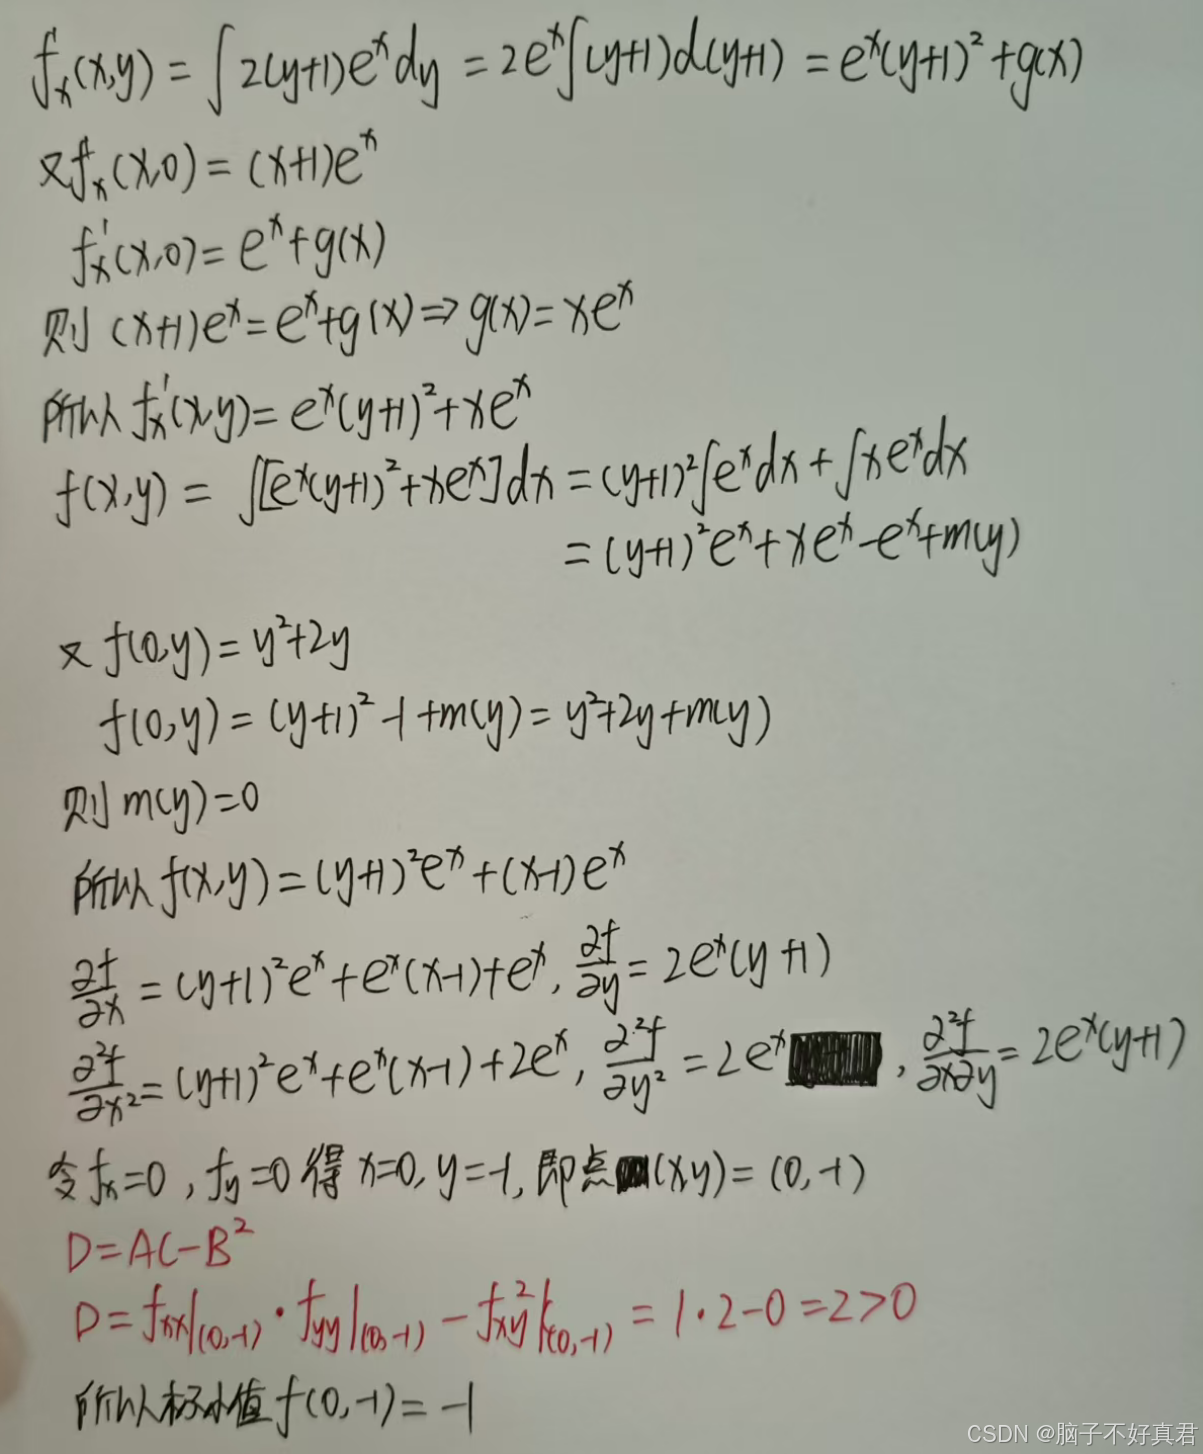 f'ₓ(x,y) = ∫2(y+1)eˣdy = 2eˣ∫(y+1)d(y+1) = eˣ(y+1)² + g(x)
又f'ₓ(x,0) = (x+1)eˣ
f'ₓ(x,0) = eˣ+g(x)
则 (x+1)eˣ = eˣ+g(x) ⇒ g(x) = xeˣ
所以 f'ₓ(x,y) = eˣ(y+1)²+xeˣ
f(x,y) = ∫[eˣ(y+1)²+xeˣ]dx = (y+1)²∫eˣdx + ∫xeˣdx
= (y+1)²eˣ+xeˣ-eˣ+m(y)
又 f(0,y) = y²+2y
f(0,y) = (y+1)²-1+m(y) = y²+2y+m(y)
则 m(y)=0
所以 f(x,y) = (y+1)²eˣ+(x-1)eˣ
∂f/∂x = (y+1)²eˣ+eˣ(x-1)+eˣ, ∂f/∂y = 2eˣ(y+1)
∂²f/∂x² = (y+1)²eˣ+eˣ(x-1)+2eˣ, ∂²f/∂y² = 2eˣ, ∂²f/∂x∂y = 2eˣ(y+1)
令 fₓ=0, f_y=0 得 x=0, y=-1, 即点(x,y) = (0,-1)
D=AC-B²
D = fₓₓ|(0,-1) · f_yy|(0,-1) - f²_xy|(0,-1) = 1·2-0 = 2>0
所以极小值 f(0,-1) = -1
CSDN @脑子不好真君